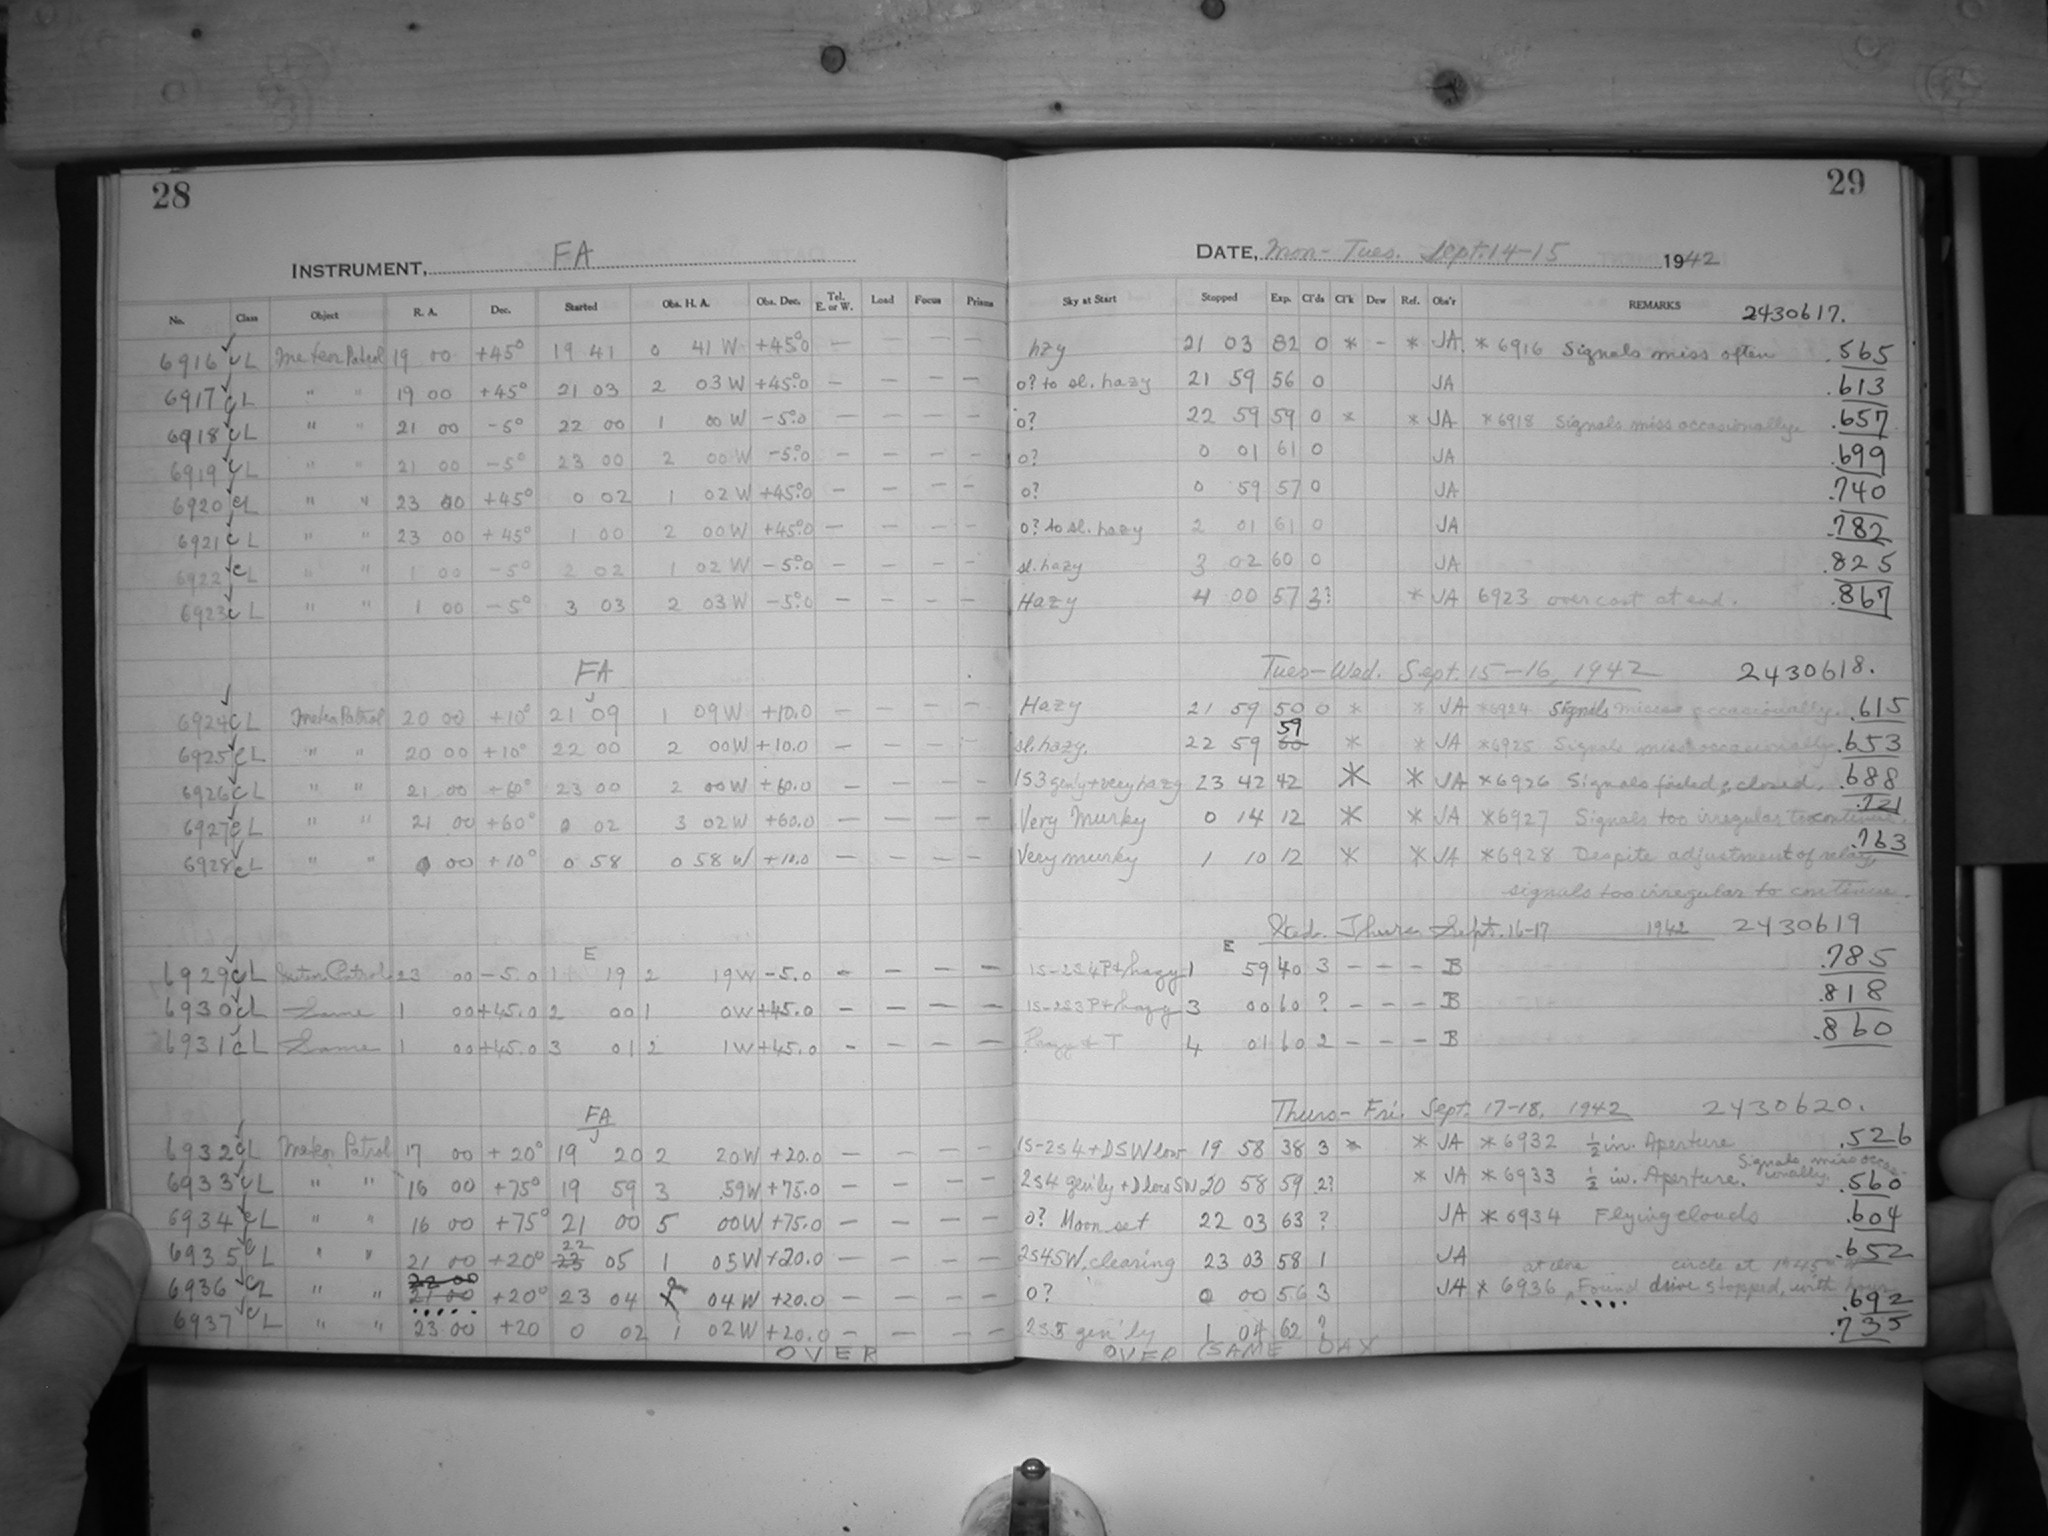 28
INSTRUMENT, FA
No. Class Object R. A. Dec. Started Obs. H. A. Obs. Dec. Tel. E. or W. Load Focus Prisms
6916 CL Meteor Patrol 19 00 +45° 19 41 0 41 W +45°.0 — — — —
6917 CL " " 19 00 +45° 21 03 2 03 W +45°.0 — — — —
6918 CL " " 21 00 -5° 22 00 1 00 W -5°.0 — — — —
6919 CL " " 21 00 -5° 23 00 2 00 W -5°.0 — — — —
6920 CL " " 23 00 +45° 0 02 1 02 W +45°.0 — — — —
6921 CL " " 23 00 +45° 1 00 2 00 W +45°.0 — — — —
6922 CL " " 1 00 -5° 2 02 1 02 W -5°.0 — — — —
6923 CL " " 1 00 -5° 3 03 2 03 W -5°.0 — — — —
FA
6924 CL Meteor Patrol 20 00 +10° 21 09 1 09 W +10.0 — — — —
6925 CL " " 20 00 +10° 22 00 2 00 W +10.0 — — — —
6926 CL " " 21 00 +60° 23 00 2 00 W +60.0 — — — —
6927 CL " " 21 00 +60° 0 02 3 02 W +60.0 — — — —
6928 CL " " 0 00 +10° 0 58 0 58 W +10.0 — — — —
E
6929 CL Meteor Patrol 23 00 -5.0 1 19 2 19 W -5.0 — — — —
6930 CL Same 1 00 +45.0 2 00 1 0 W +45.0 — — — —
6931 CL Same 1 00 +45.0 3 01 2 1 W +45.0 — — — —
FA
J
6932 CL Meteor Patrol 17 00 +20° 19 20 2 20 W +20.0 — — — —
6933 CL " " 16 00 +75° 19 59 3 59 W +75.0 — — — —
6934 CL " " 16 00 +75° 21 00 5 00 W +75.0 — — — —
22
6935 CL " " 21 00 +20° 23 05 1 05 W +20.0 — — — —
22 00
6936 CL " " 21 00 +20° 23 04 2 04 W +20.0 — — — —
6937 CL " " 23 00 +20 0 02 1 02 W +20.0 — — — —
OVER
29
DATE, Mon-Tues. Sept. 14-15 1942
Sky at Start Stopped Exp. Cl'ds Cl'k Dew Ref. Obs'r REMARKS 2430617.
hzy 21 03 82 0 * - * JA. * 6916 Signals miss often .565
0? to sl. hazy 21 59 56 0 JA .613
0? 22 59 59 0 * * JA *6918 Signals miss occasionally. .657
0? 0 01 61 0 JA .699
0? 0 59 57 0 JA .740
0? to sl. hazy 2 01 61 0 JA .782
sl. hazy 3 02 60 0 JA .825
Hazy 4 00 57 3? * JA 6923 overcast at end. .867
Tues-Wed. Sept. 15-16, 1942 2430618.
Hazy 21 59 50 0 * * JA *6924 Signals misses occasionally. .615
59
sl. hazy. 22 59 60 * * JA *6925 Signals miss occasionally .653
1S3 gen'ly + very hazy 23 42 42 * * JA *6926 Signals failed; closed. .688
Very Murky 0 14 12 * * JA *6927 Signals too irregular to continue. .721
Very murky 1 10 12 * * JA *6928 Despite adjustment of relay, .763
signals too irregular to continue.
Wed. Thurs. Sept. 16-17 1942 2430619
E
1S-2S4P+hazy 1 59 40 3 — — — B .785
1S-2S3P+hazy 3 00 60 ? — — — B .818
Hazy & T 4 01 60 2 — — — B .860
Thurs-Fri. Sept. 17-18, 1942 2430620.
1S-2S4+DSW low 19 58 38 3 * * JA * 6932 ½ in. Aperture .526
Signals miss occasionally.
2S4 gen'ly + D low SW 20 58 59 2? * JA * 6933 ½ in. Aperture. .560
0? Moon set 22 03 63 ? JA * 6934 Flying clouds .604
2S4SW, clearing 23 03 58 1 JA .652
at end circle at 1h45m W
0? 0 00 56 3 JA * 6936, Found drive stopped, with hour .692
2S3 gen'ly 1 04 62 ? .735
OVER (SAME DAY